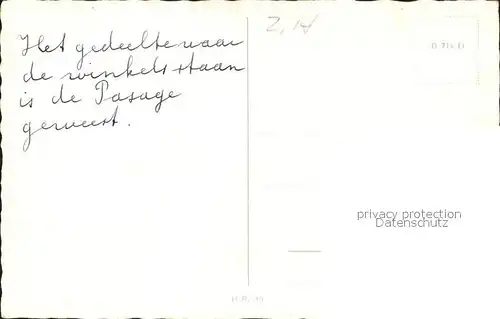 Het gedeelte waar
de winkels staan
is de Pasage
geweest.
Z.H
privacy protection
Datenschutz